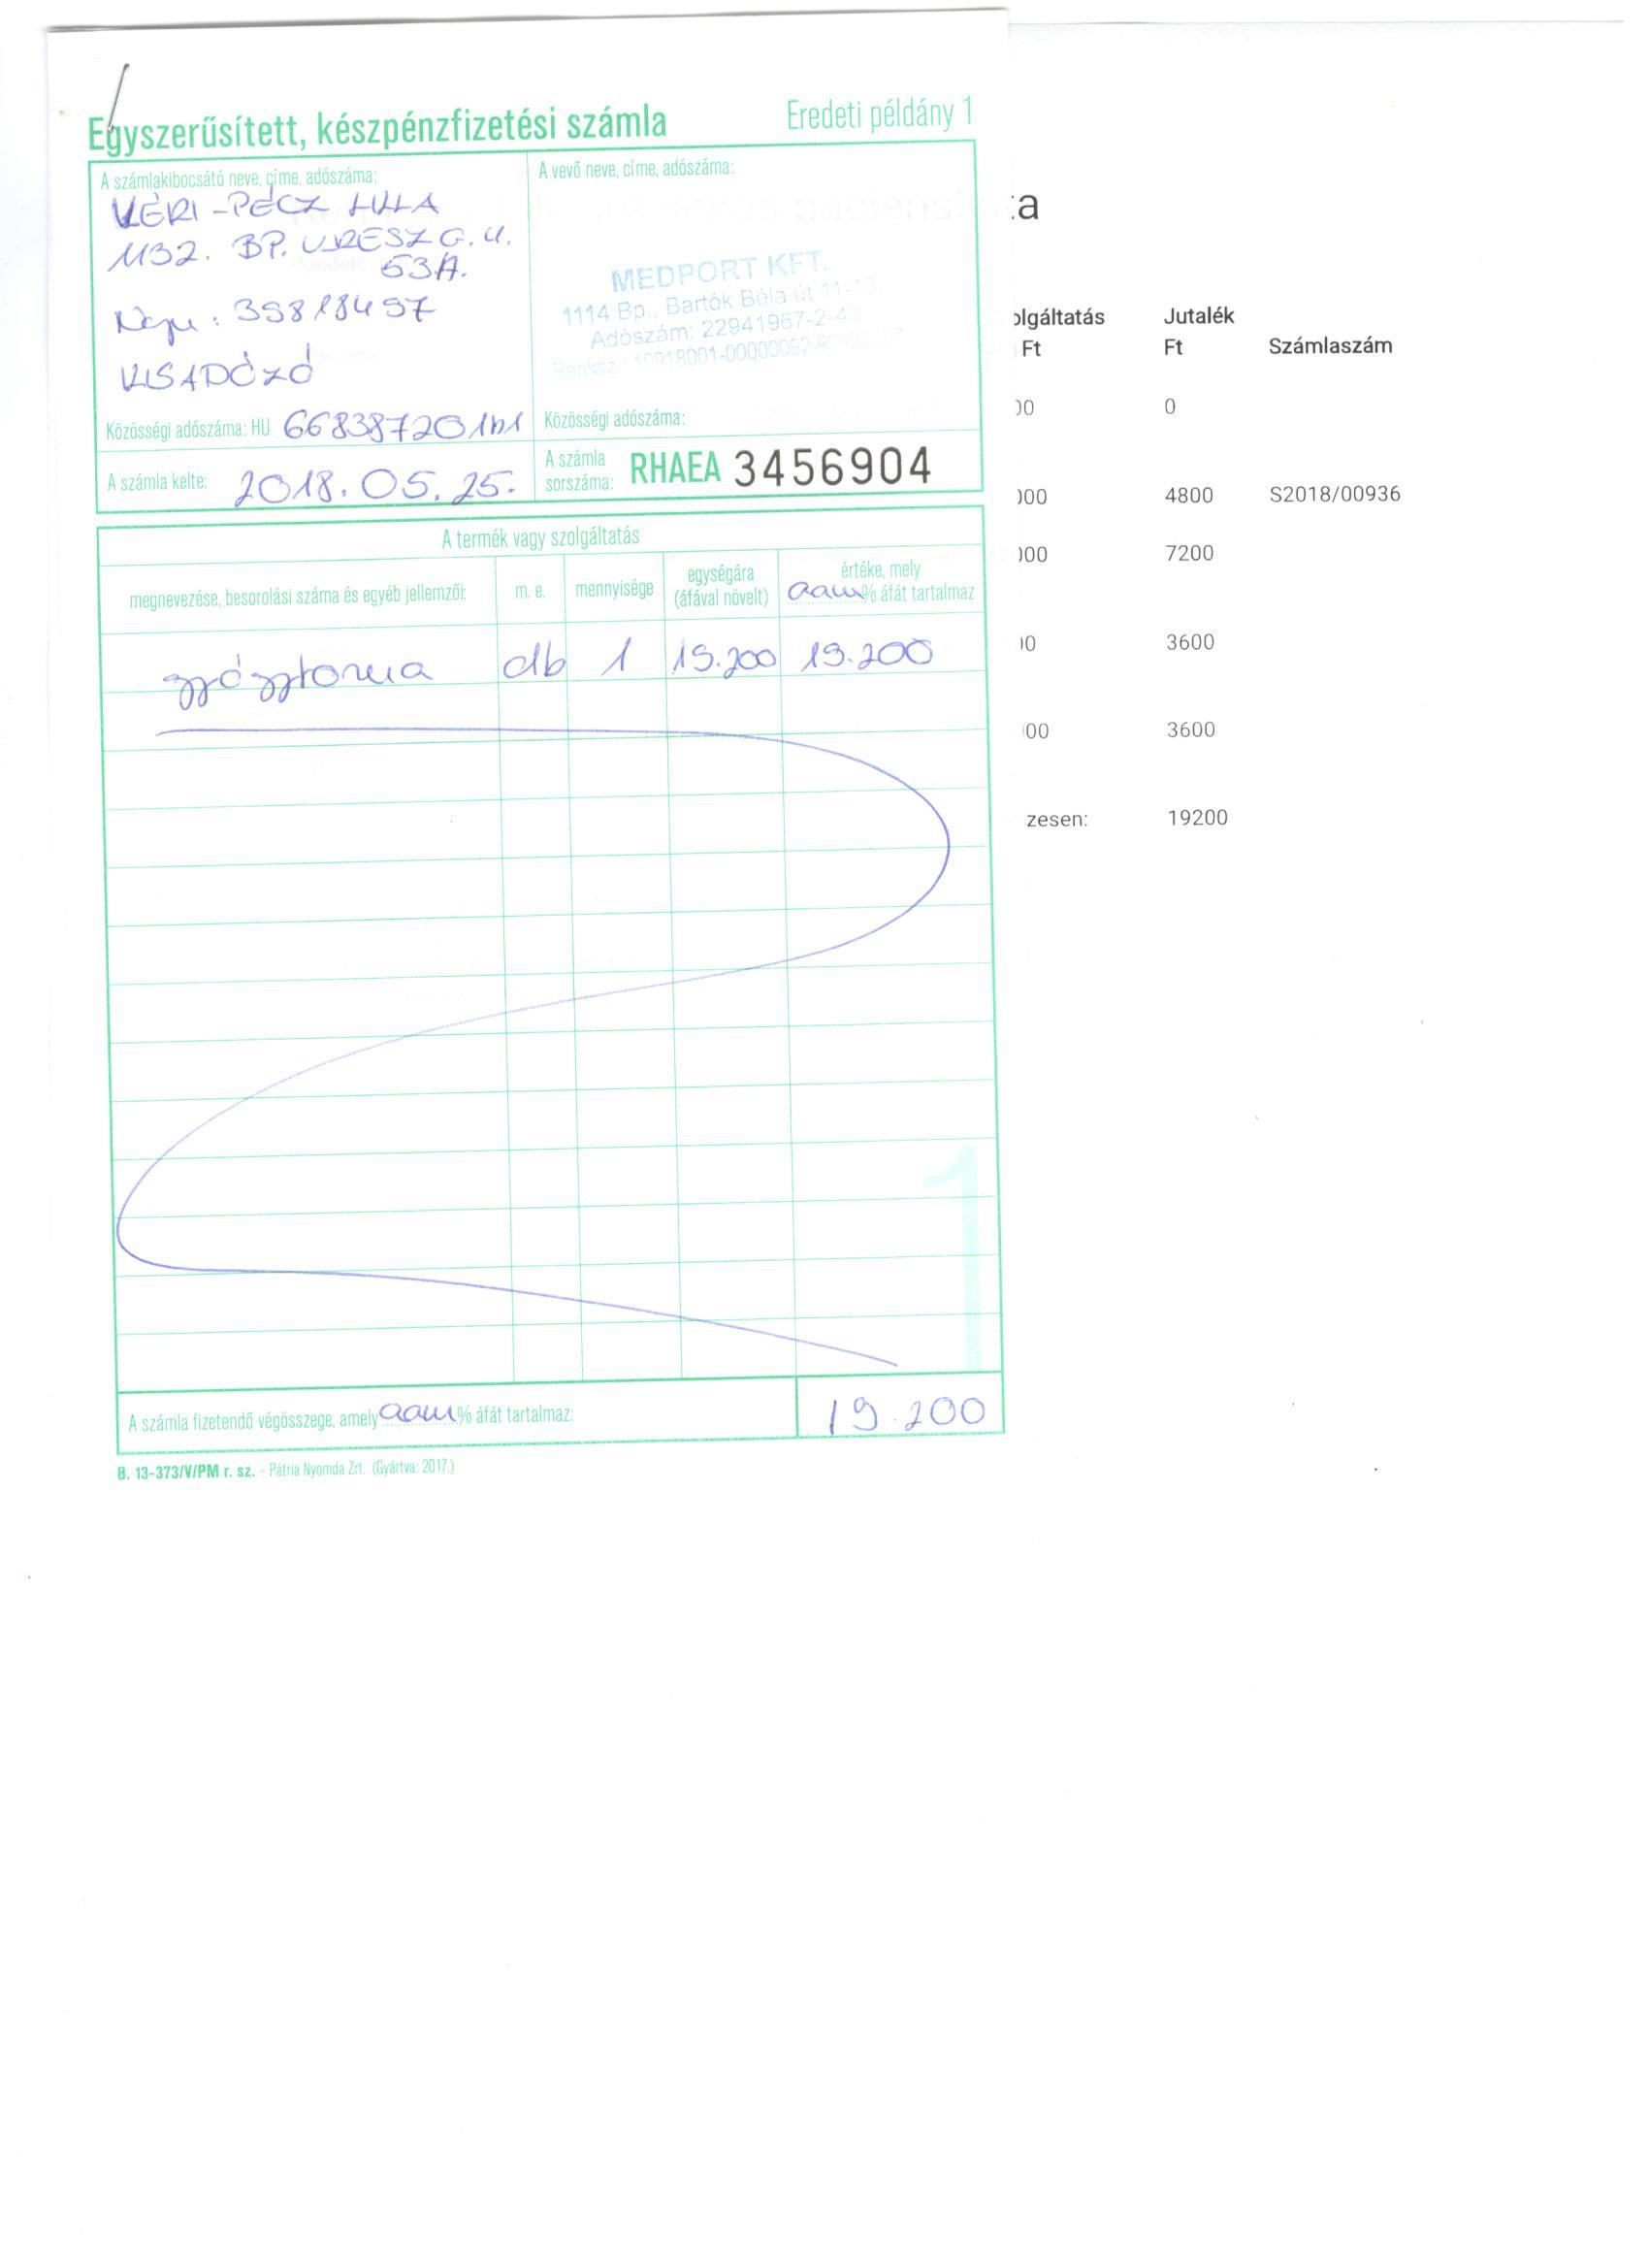 Egyszerűsített, készpénzfizetési számla
Eredeti példány 1
A számlakibocsátó neve, címe, adószáma:
KÉRI-PÉCZ LILLA
1132. BP. KRESZ G. U.
53A.
39818497
KISADÓZÓ
Közösségi adószáma: HU
A számla kelte: 2018. 05. 25.
A vevő neve, címe, adószáma:
MEDPORT KFT.
1114 Bp., Bartók Béla út 11-13.
Adószám: 22941967-2-43
Közösségi adószáma:
A számla
sorszáma: RHAEA 3456904
A termék vagy szolgáltatás
megnevezése, besorolási száma és egyéb jellemzői:
m. e.
mennyisége
egységára
(áfával növelt)
értéke, mely
aam % áfát tartalmaz
gyógytorna db 1 19.200 19.200
A számla fizetendő végösszege, amely aam % áfát tartalmaz: 19.200
B. 13-373/V/PM r. sz. – Pátria Nyomda Zrt. (Gyártva: 2017.)
Jutalék
Ft Ft Számlaszám
00 0
000 4800 S2018/00936
000 7200
00 3600
00 3600
zesen: 19200